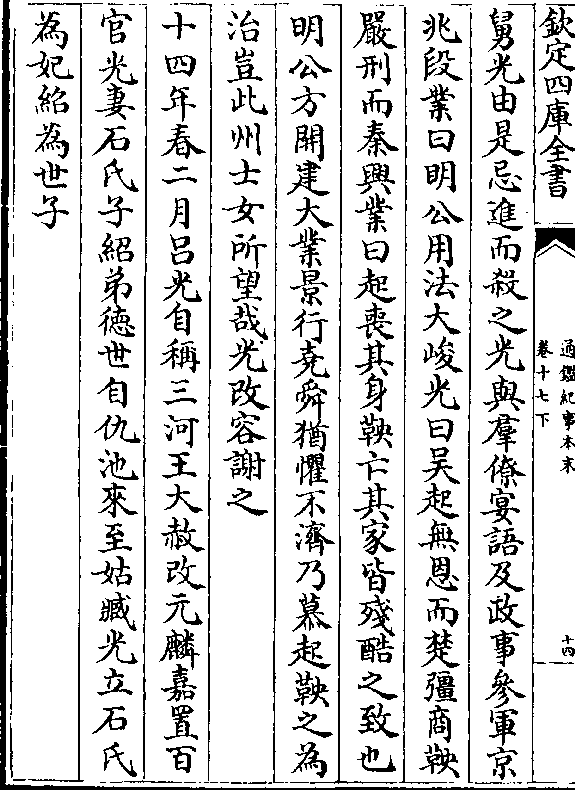 欽定四庫全書
通鑑紀事本末
卷十七下
十四
舅光由是忌進而殺之光與羣僚宴語及政事參軍京
兆段業曰明公用法大峻光曰吴起無恩而楚彊商鞅
嚴刑而秦興業曰起喪其身鞅亡其家皆殘酷之致也
明公方開建大業景行堯舜猶懼不濟乃慕起鞅之為
治豈此州士女所望哉光改容謝之
十四年春二月吕光自稱三河王大赦改元麟嘉置百
官光妻石氏子紹弟德世自仇池來至姑臧光立石氏
為妃紹為世子